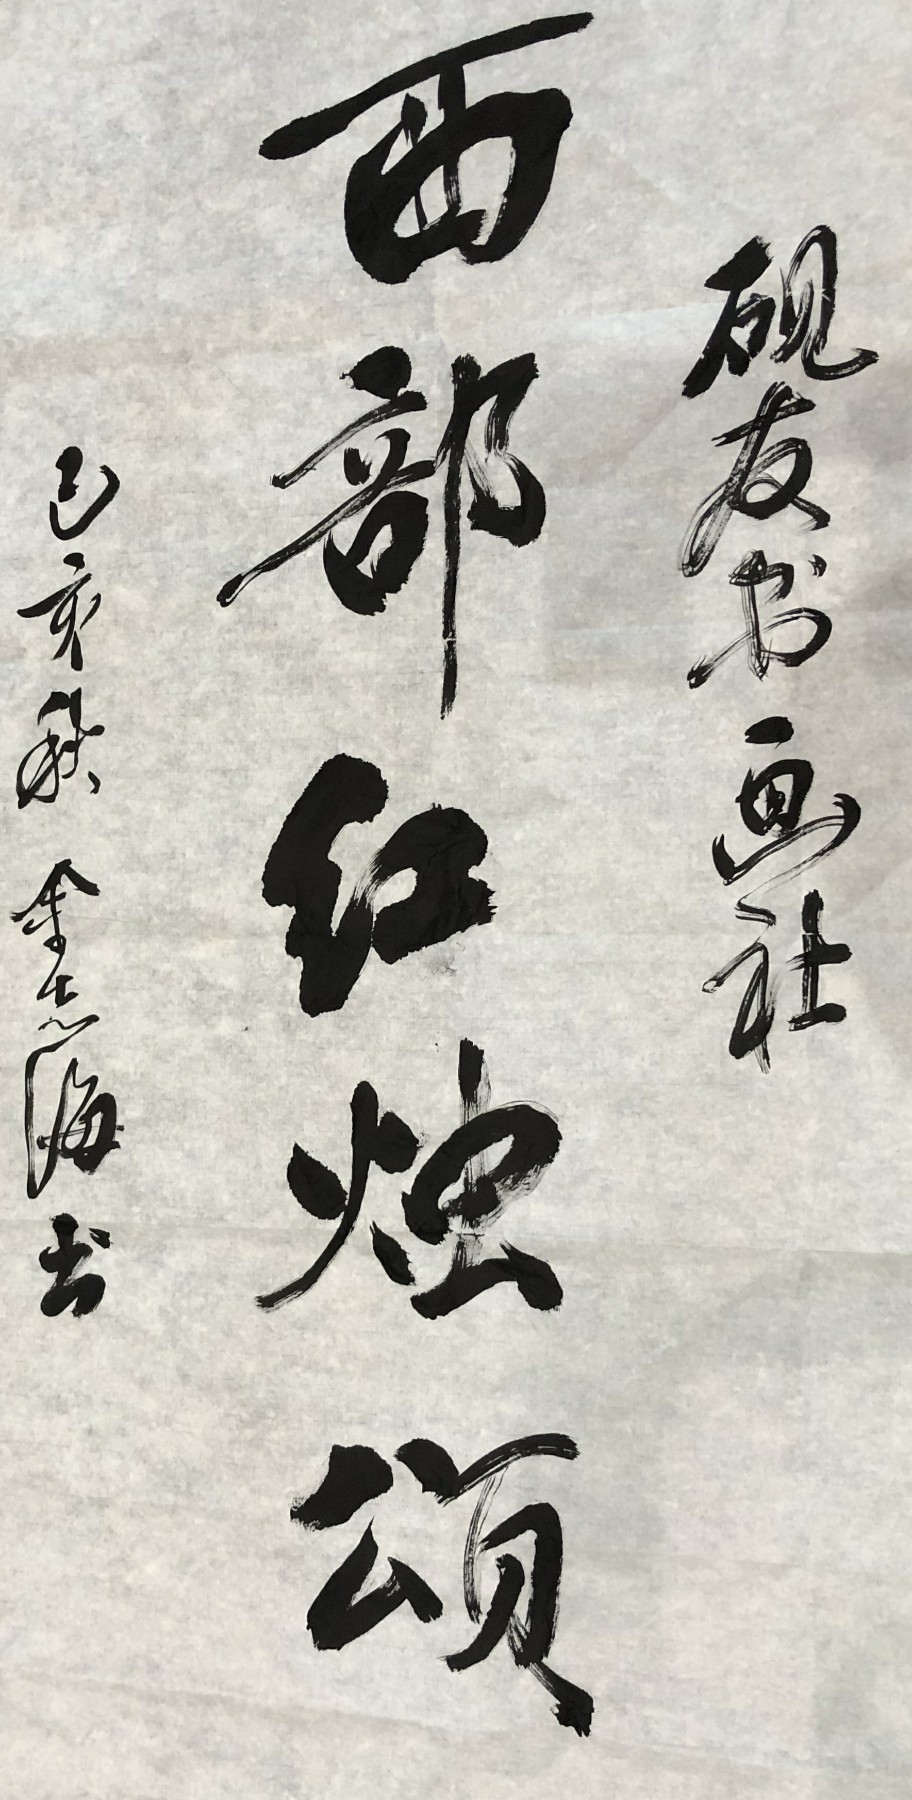 砚友书画社
西部红烛颂
己亥秋 金志海书